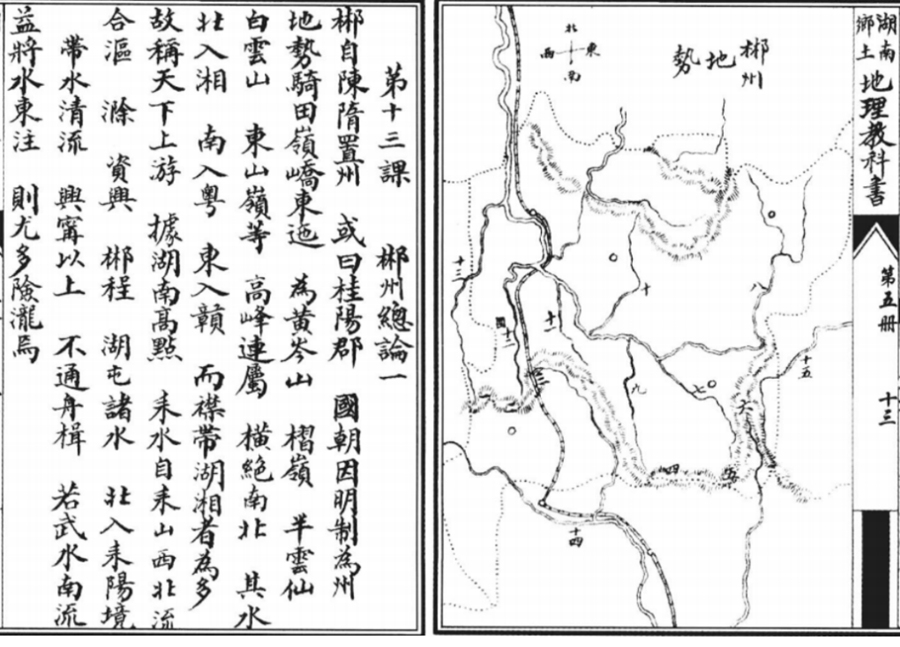 湖南鄉土地理教科書
第五冊
十三
郴州地勢
北
東
西
南
八
十
十三
十一
十五
九
七
六
三
二
四
五
十四
第十三課 郴州總論一
郴自陳隋置州 或曰桂陽郡 國朝因明制為州
地勢騎田嶺嶠東迤 為黃岑山 摺嶺 半雲仙
白雲山 東山嶺等 高峰連屬 橫絕南北 其水
北入湘 南入粵 東入贛 而襟帶湖湘者為多
故稱天下上游 據湖南高點 耒水自耒山西北流
合漚 滁 資興 郴程 湖屯諸水 北入耒陽境
帶水清流 興寧以上 不通舟楫 若武水南流
益將水東注 則尤多險瀧焉